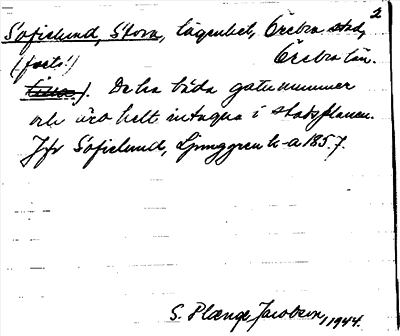 2
Sofielund, Stora, lägenhet, Örebro stad,
(forts.) Örebro län.
Lilla). De ha båda gatunummer
och äro helt intagna i stadsplanen.
Jfr Sofielund, Ljunggren h-a 185.7.
S. Plænge Jacobson, 1944.